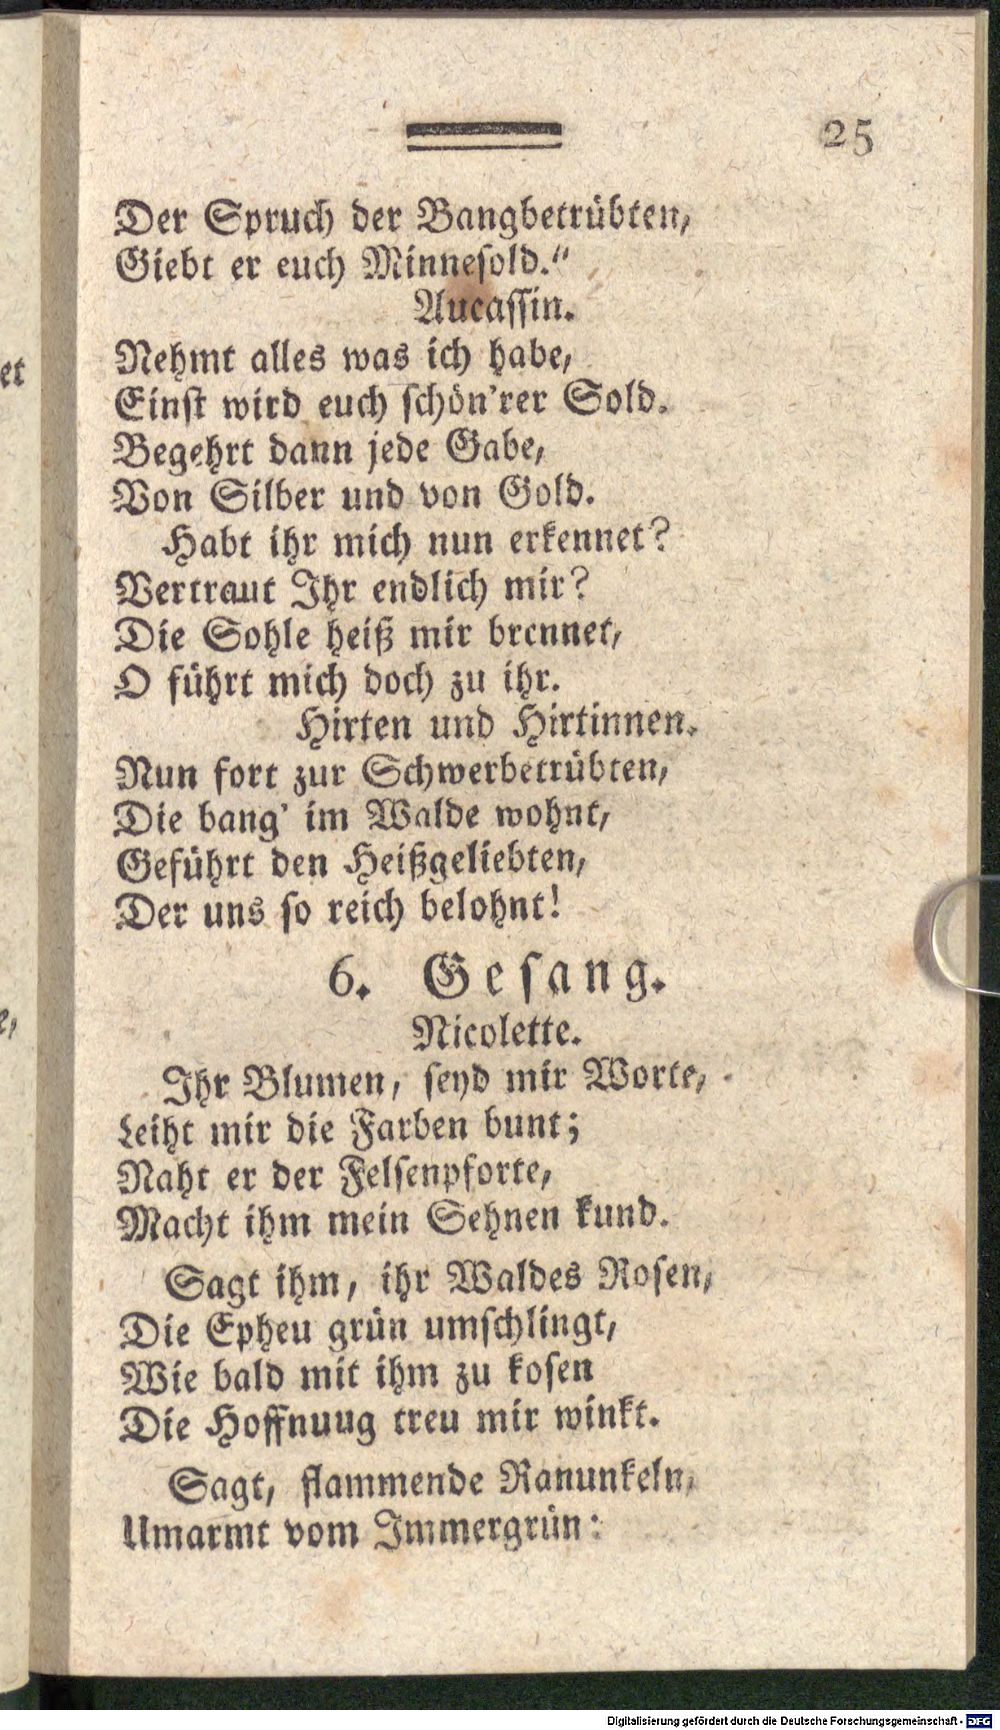 25
Der Spruch der Bangbetrübten,
Giebt er euch Minnesold.“
Aucassin.
Nehmt alles was ich habe,
Einst wird euch schön'rer Sold.
Begehrt dann jede Gabe,
Von Silber und von Gold.
Habt ihr mich nun erkennet?
Vertraut Ihr endlich mir?
Die Sohle heiß mir brennet,
O führt mich doch zu ihr.
Hirten und Hirtinnen.
Nun fort zur Schwerbetrübten,
Die bang' im Walde wohnt,
Geführt den Heißgeliebten,
Der uns so reich belohnt!
6. Gesang.
Nicolette.
Ihr Blumen, seyd mir Worte,
Leiht mir die Farben bunt;
Naht er der Felsenpforte,
Macht ihm mein Sehnen kund.
Sagt ihm, ihr Waldes Rosen,
Die Epheu grün umschlingt,
Wie bald mit ihm zu kosen
Die Hoffnuug treu mir winkt.
Sagt, flammende Ranunkeln,
Umarmt vom Immergrün:
Digitalisierung gefördert durch die Deutsche Forschungsgemeinschaft - DFG